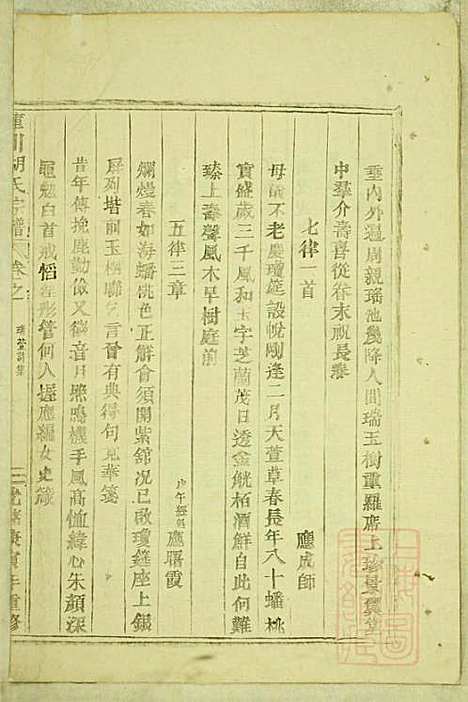 垂內外週周親瑤池幾降人間瑞玉樹重羅席上珍景興堂
中羣介壽喜從春末祝長春
七律一首
應成師
母儀不老慶瓊筵設帨剛逢二月天萱草春長年八十蟠桃
實盛歲三千風和玉字芝蘭茂日透金觥栢酒鮮自此何難
臻上壽聲風木早樹庭前
五律三章
戊午經魁應曙霞
爛熳春如海蟠桃色正鮮會須開紫舘况已啟瓊筵座上銀
屏列堦前玉樹聯乞言曾有典得句見華箋
昔年傳挽鹿勤儉又德音月照鳴機手風高恤緯心朱顏深
黽勉白首戒 彤管何人握應編女史箴
蓮川胡氏宗譜
卷之
瑤萱詩集
三
光緒庚寅年重修